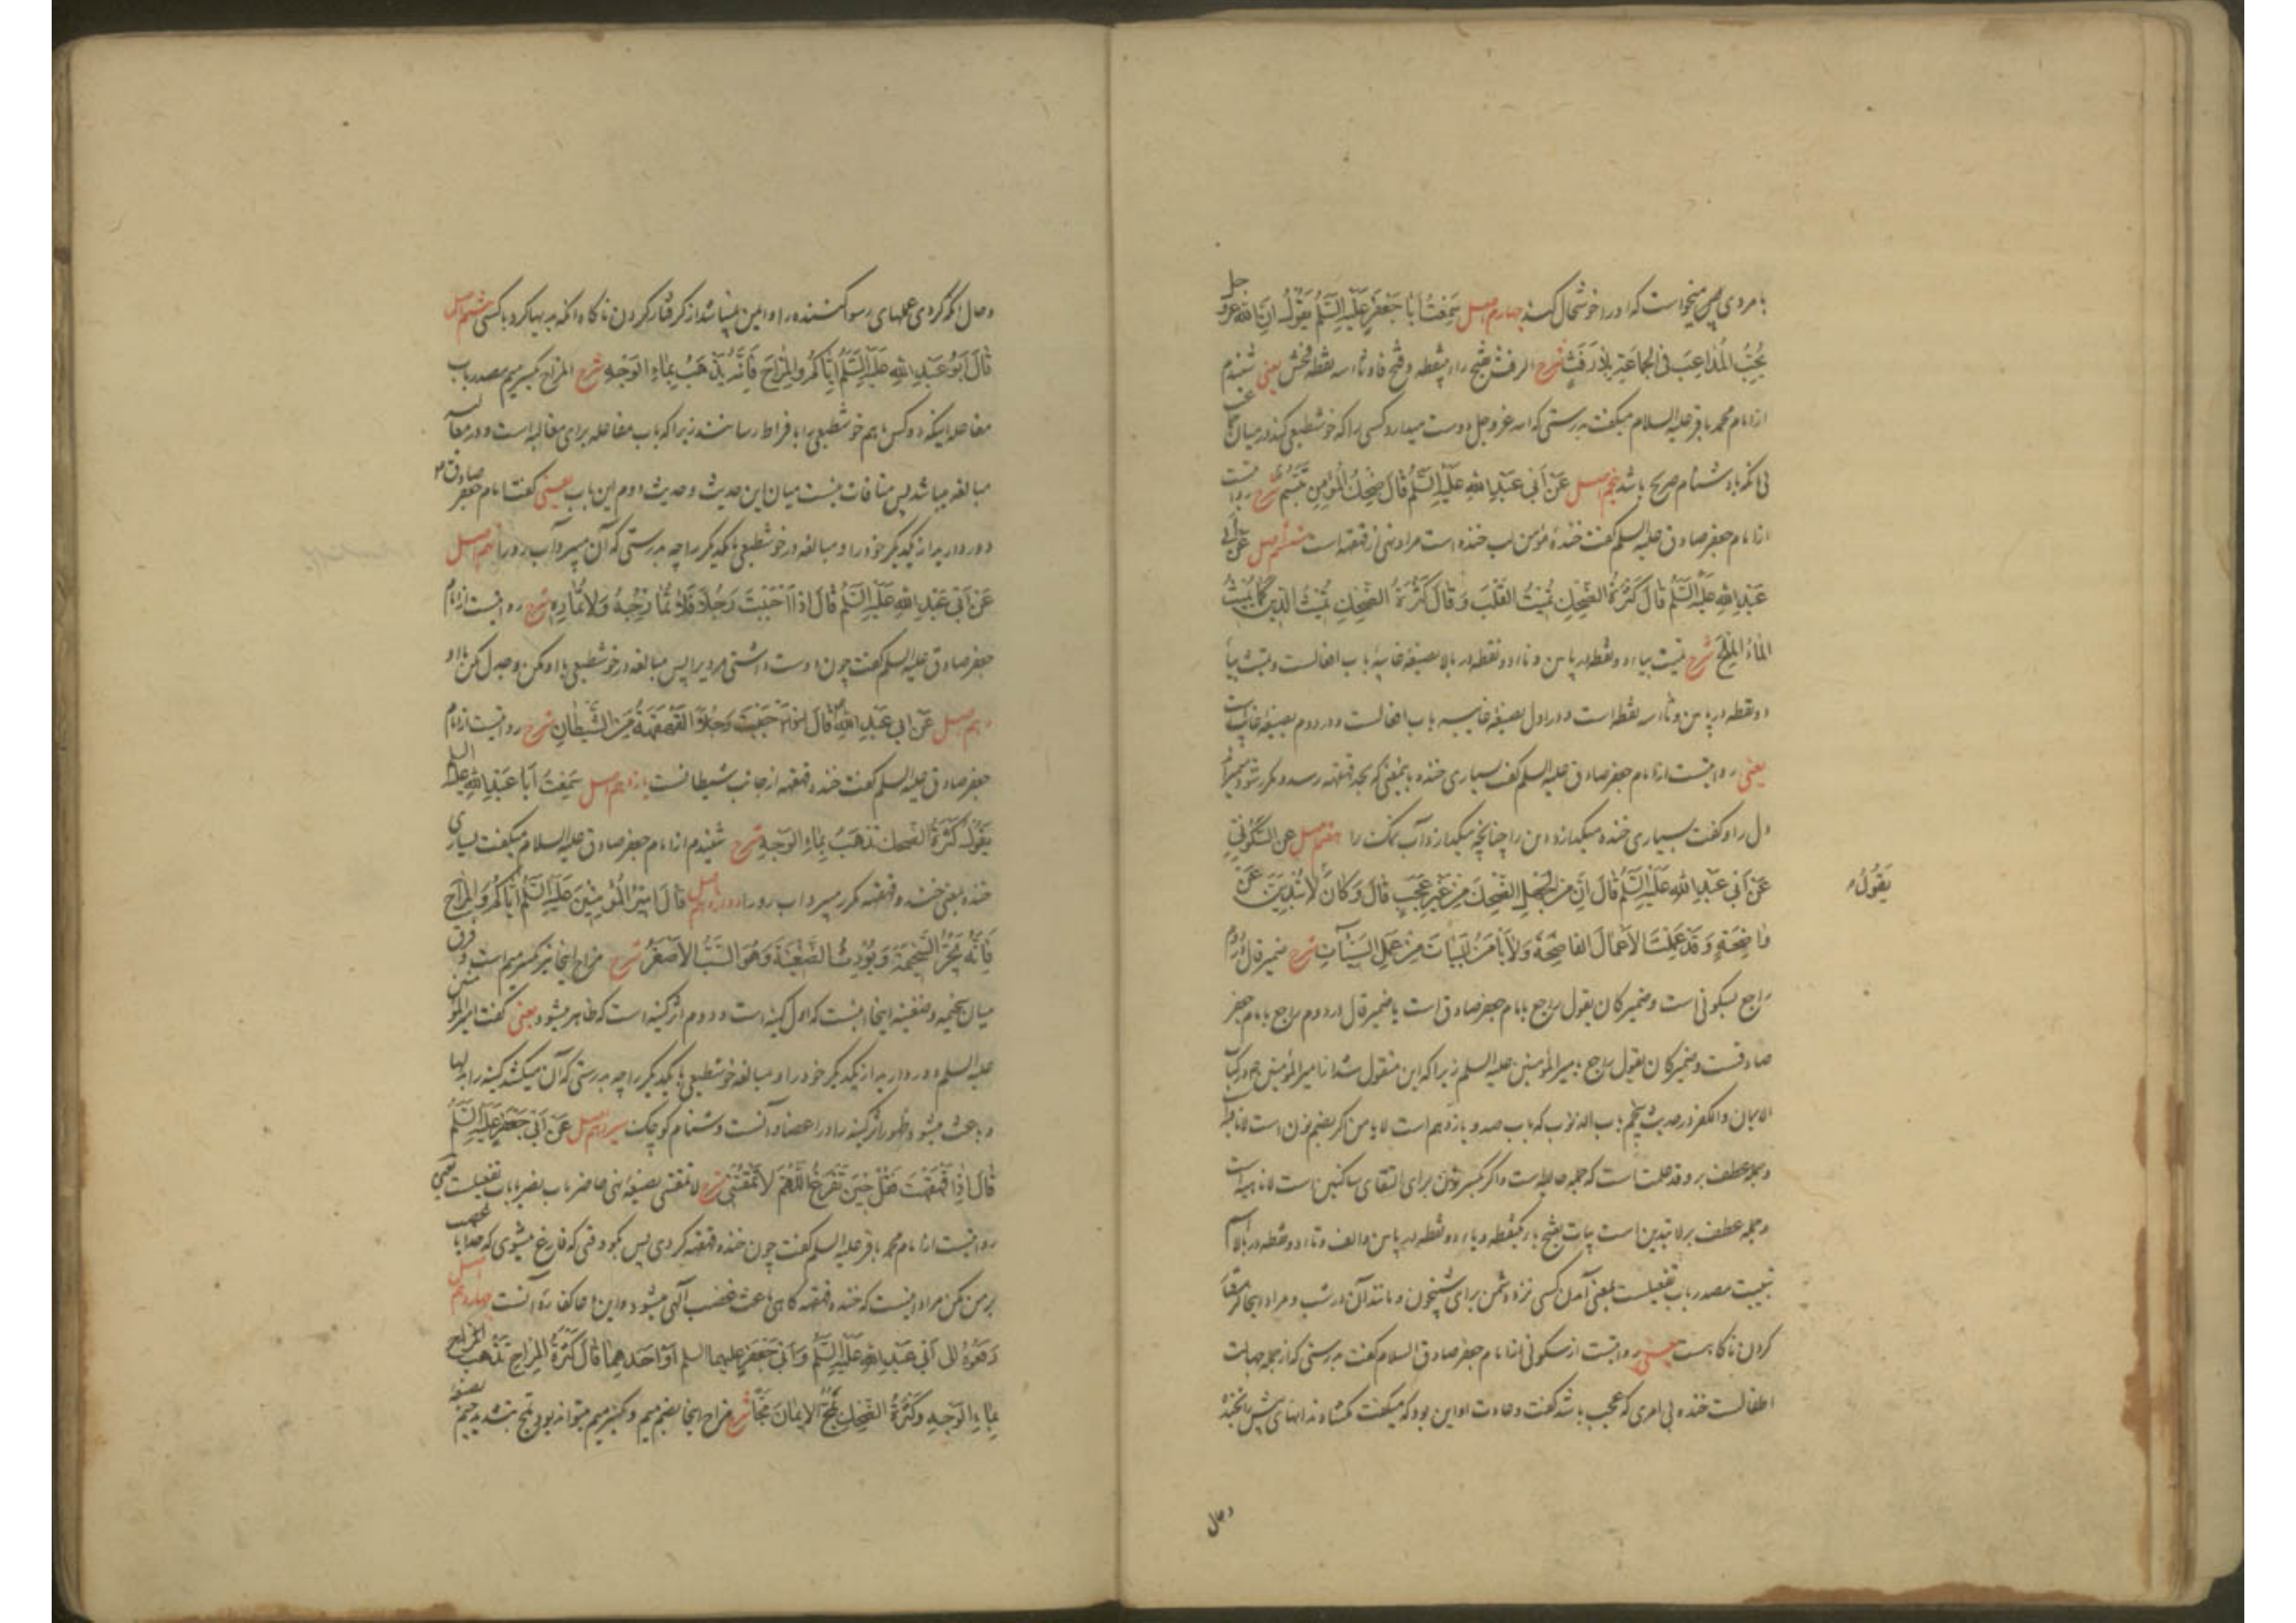 با مردی پس میخواست که او را خوشحال کند چهارم اصل سَمِعْتُ اَبَا جَعْفَرٍ عَلَیْهِ السَّلَمُ یَقُولُ اِنَّ اللهَ عَزَّ وجل
یُحِبُّ المُدَاعِبَ فِی الجَمَاعَةِ بِلاَ رَفَثٍ شرح الرفث بفتح راء بینقطه و فتح فا و ثاء سه نقطه فحش یعنی شنیدم
از امام محمد باقر علیه السلام میگفت بدرستی که الله عزوجل دوست میدارد کسی را که خوشطبعی کند در میان
بی آنکه با دشنام صریح باشد پنجم اصل عَنْ اَبِی عَبْدِ اللهِ عَلَیْهِ السَّلَمُ قَالَ ضِحْكُ المُؤْمِنِ تَبَسُّمٌ شرح روایتست
از امام جعفر صادق علیه السلم گفت خندهٔ مؤمن لب خنده است مراد نهی از قهقهه است ششم اصل عَنْ اَبِی
عَبْدِ اللهِ عَلَیْهِ السَّلَمُ قَالَ كَثْرَةُ الضِّحْكِ تُمِیتُ القَلْبَ وَ قَالَ كَثْرَةُ الضِّحْكِ تَمِیثُ الدِّینَ كَمَا یَمِیثُ
المَاءُ المِلْحَ شرح تمیت بیاء دو نقطه در پایین و تاء دو نقطه در بالا بصیغهٔ غایبهٔ باب افعالست و تمیث بیاء
دو نقطه در پایین و ثاء سه نقطه است و در اول بصیغهٔ غایبه باب افعالست و در دوم بصیغهٔ غایب است
یعنی روایتست از امام جعفر صادق علیه السلم گفت بسیاری خنده بمعنی که بحد قهقهه رسد و مکرر شود میمیراند
دل را و گفت بسیاری خنده میگدازد دین را چنانچه میگدازد آب نمک را هفتم اصل عن السَّكُونِیِّ
عَنْ اَبِی عَبْدِ اللهِ عَلَیْهِ السَّلَمُ قَالَ اِنَّ مِنَ الجَهْلِ الضِّحْكَ مِنْ غَیْرِ عَجَبٍ قَالَ وَ كَانَ لاَ تُبْدِیَنَّ عَنْ
یَقُولُ
وَاضِحَةٍ وَ قَدْ عَمِلْتَ الاَعْمَالَ الفَاضِحَةَ وَ لاَ یَأْمَنُ البَیَاتَ مَنْ عَمِلَ السَّیِّئَاتِ شرح ضمیر قال در دوم
راجع بسکونی است و ضمیر کان یقول راجع بامام جعفر صادق است یا ضمیر قال در دوم راجع بامام جعفر
صادقست و ضمیر کان یقول راجع بامیر المؤمنین علیه السلم زیرا که این منقول شد از امیر المؤمنین در کتاب
الایمان والکفر در حدیث پنجم باب الذنوب که باب صد و یازدهم است لا یامن اگر بضم نون است لا نافیه
و جمله عطف بر و قد عملت است که جمله حالیه است و اگر بکسر نون برای التقای ساکنین است لا ناهیه است
و جمله عطف بر لا تبدین است بیات بفتح باء یکنقطه و یاء دو نقطه در پایین و الف و تاء دو نقطه در بالا اسم
تبییت مصدر باب تفعیلست بمعنی آمدن کسی نزد دشمن برای شبیخون و مانند آن در شب و مراد اینجا گرفتار
کردن ناگاهست یعنی روایتست از سکونی از امام جعفر صادق السلام گفت بدرستی که از جمله جهالت
اطفالست خنده بی امری که عجب باشد گفت و عادت او این بود که میگفت مگشا دندانهای پیش را بخنده
و حال
و حال آنکه کردی عملهای رسوا کننده را و ایمن نمیباشد از گرفتار کردن ناگاه آنکه بدیها کرد با کسی هشتم اصل
قَالَ اَبُو عَبْدِ اللهِ عَلَیْهِ السَّلَمُ اِیَّاكُمْ وَ المِزَاحَ فَاِنَّهُ یَذْهَبُ بِمَاءِ الوَجْهِ شرح المزاح بکسر میم مصدر باب
مفاعله اینکه دو کس باهم خوشطبعی را بافراط رسانند زیرا که باب مفاعله برای مغالبه است و در مغالبه
مبالغه میباشد پس منافات نیست میان این حدیث و حدیث دوم این باب یعنی گفت امام جعفر صادق
دور دارید از یکدیگر خود را و مبالغه در خوشطبعی با یکدیگر را چه بدرستی که آن میبرد آب رو را نهم اصل
عَنْ اَبِی عَبْدِ اللهِ عَلَیْهِ السَّلَمُ قَالَ اِذَا اَحْبَبْتَ رَجُلاً فَلاَ تُمَازِحْهُ وَ لاَ تُمَارِهِ شرح روایتست از امام
جعفر صادق علیه السلم گفت چون دوست داشتی مردیرا پس مبالغه در خوشطبعی با او مکن و جدل مکن با او
دهم اصل عَنْ اَبِی عَبْدِ اللهِ قَالَ اِذَا اَحْبَبْتَ رَجُلاً القَهْقَهَةُ مِنَ الشَّیْطَانِ شرح روایتست از امام
جعفر صادق علیه السلم گفت خنده قهقهه از جانب شیطانست یازدهم اصل سَمِعْتُ اَبَا عَبْدِ اللهِ علیه السلم
یَقُولُ كَثْرَةُ الضحك تَذْهَبُ بِمَاءِ الوَجْهِ شرح شنیدم از امام جعفر صادق علیه السلام میگفت بسیاری
خنده یعنی خنده و قهقهه مکرر میبرد آب رو را دوازدهم اصل قَالَ اَمِیرُ المُؤْمِنِینَ عَلَیْهِ السَّلَمُ اِیَّاكُمْ وَ المِزَاحَ
فَاِنَّهُ یَجُرُّ السَّخِیمَةَ وَ یُورِثُ الضَّغِینَةَ وَ هُوَ السَّبُّ الاَصْغَرُ شرح مزاح اینجا نیز بکسر میم است و فرق
میان سخیمه و ضغینه اینجا اینست که اول کینه است و دوم اثر کینه است که ظاهر میشود یعنی گفت امیر المؤمنین
علیه السلم دور دارید از یکدیگر خود را و مبالغه خوشطبعی با یکدیگر را چه بدرستی که آن میکشد کینه را بدلها
و باعث میشود ظهور اثر کینه را در اعضا و آنست دشنام کوچک سیزدهم اصل عَنْ اَبِی جَعْفَرٍ عَلَیْهِ السَّلَمُ
قَالَ اِذَا قَهْقَهْتَ فَقُلْ حِینَ تَفْرَغُ اللّٰهُمَّ لاَ تَمْقُتْنِی شرح لا تمقتنی بصیغهٔ نهی حاضر باب نصر یا باب تفعیلست یعنی
روایتست از امام محمد باقر علیه السلم گفت چون خنده قهقهه کردی پس بگو وقتی که فارغ میشوی که خدایا غضب
بر من مکن مراد اینست که خنده قهقهه گاهی باعث غضب الهی میشود و این دعا کفارهٔ آنست چهاردهم اصل
رَفَعَهُ الی اَبِی عَبْدِ اللهِ عَلَیْهِ السَّلَمُ وَ اَبِی جَعْفَرٍ علیهما السلم اَوْ اَحَدِهِمَا قَالَ كَثْرَةُ المِزَاحِ تَذْهَبُ
بِمَاءِ الوَجْهِ وَ كَثْرَةُ الضِّحْكِ تَمُجُّ الاِیمَانَ مَجّاً شرح مزاح اینجا بضم میم و بکسر میم میتواند بود تمج بتشدید جیم بصیغهٔ